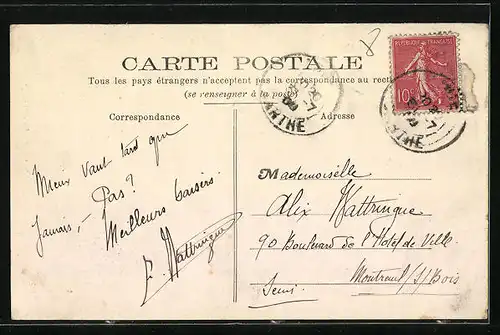 CARTE POSTALE
Tous les pays étrangers n'acceptent pas la correspondance au recto
(se renseigner à la poste)
Correspondance
Adresse
REPUBLIQUE FRANÇAISE
10c
ARTHE
ARTHE
Mieux vaut tard que
Jamais, – Pas?
Meilleurs baisers.
E. Wattringue
Mademoiselle
Alix Wattringue
90 Boulevard de l'Hôtel de Ville
Montreuil /s/ Bois
Seine.